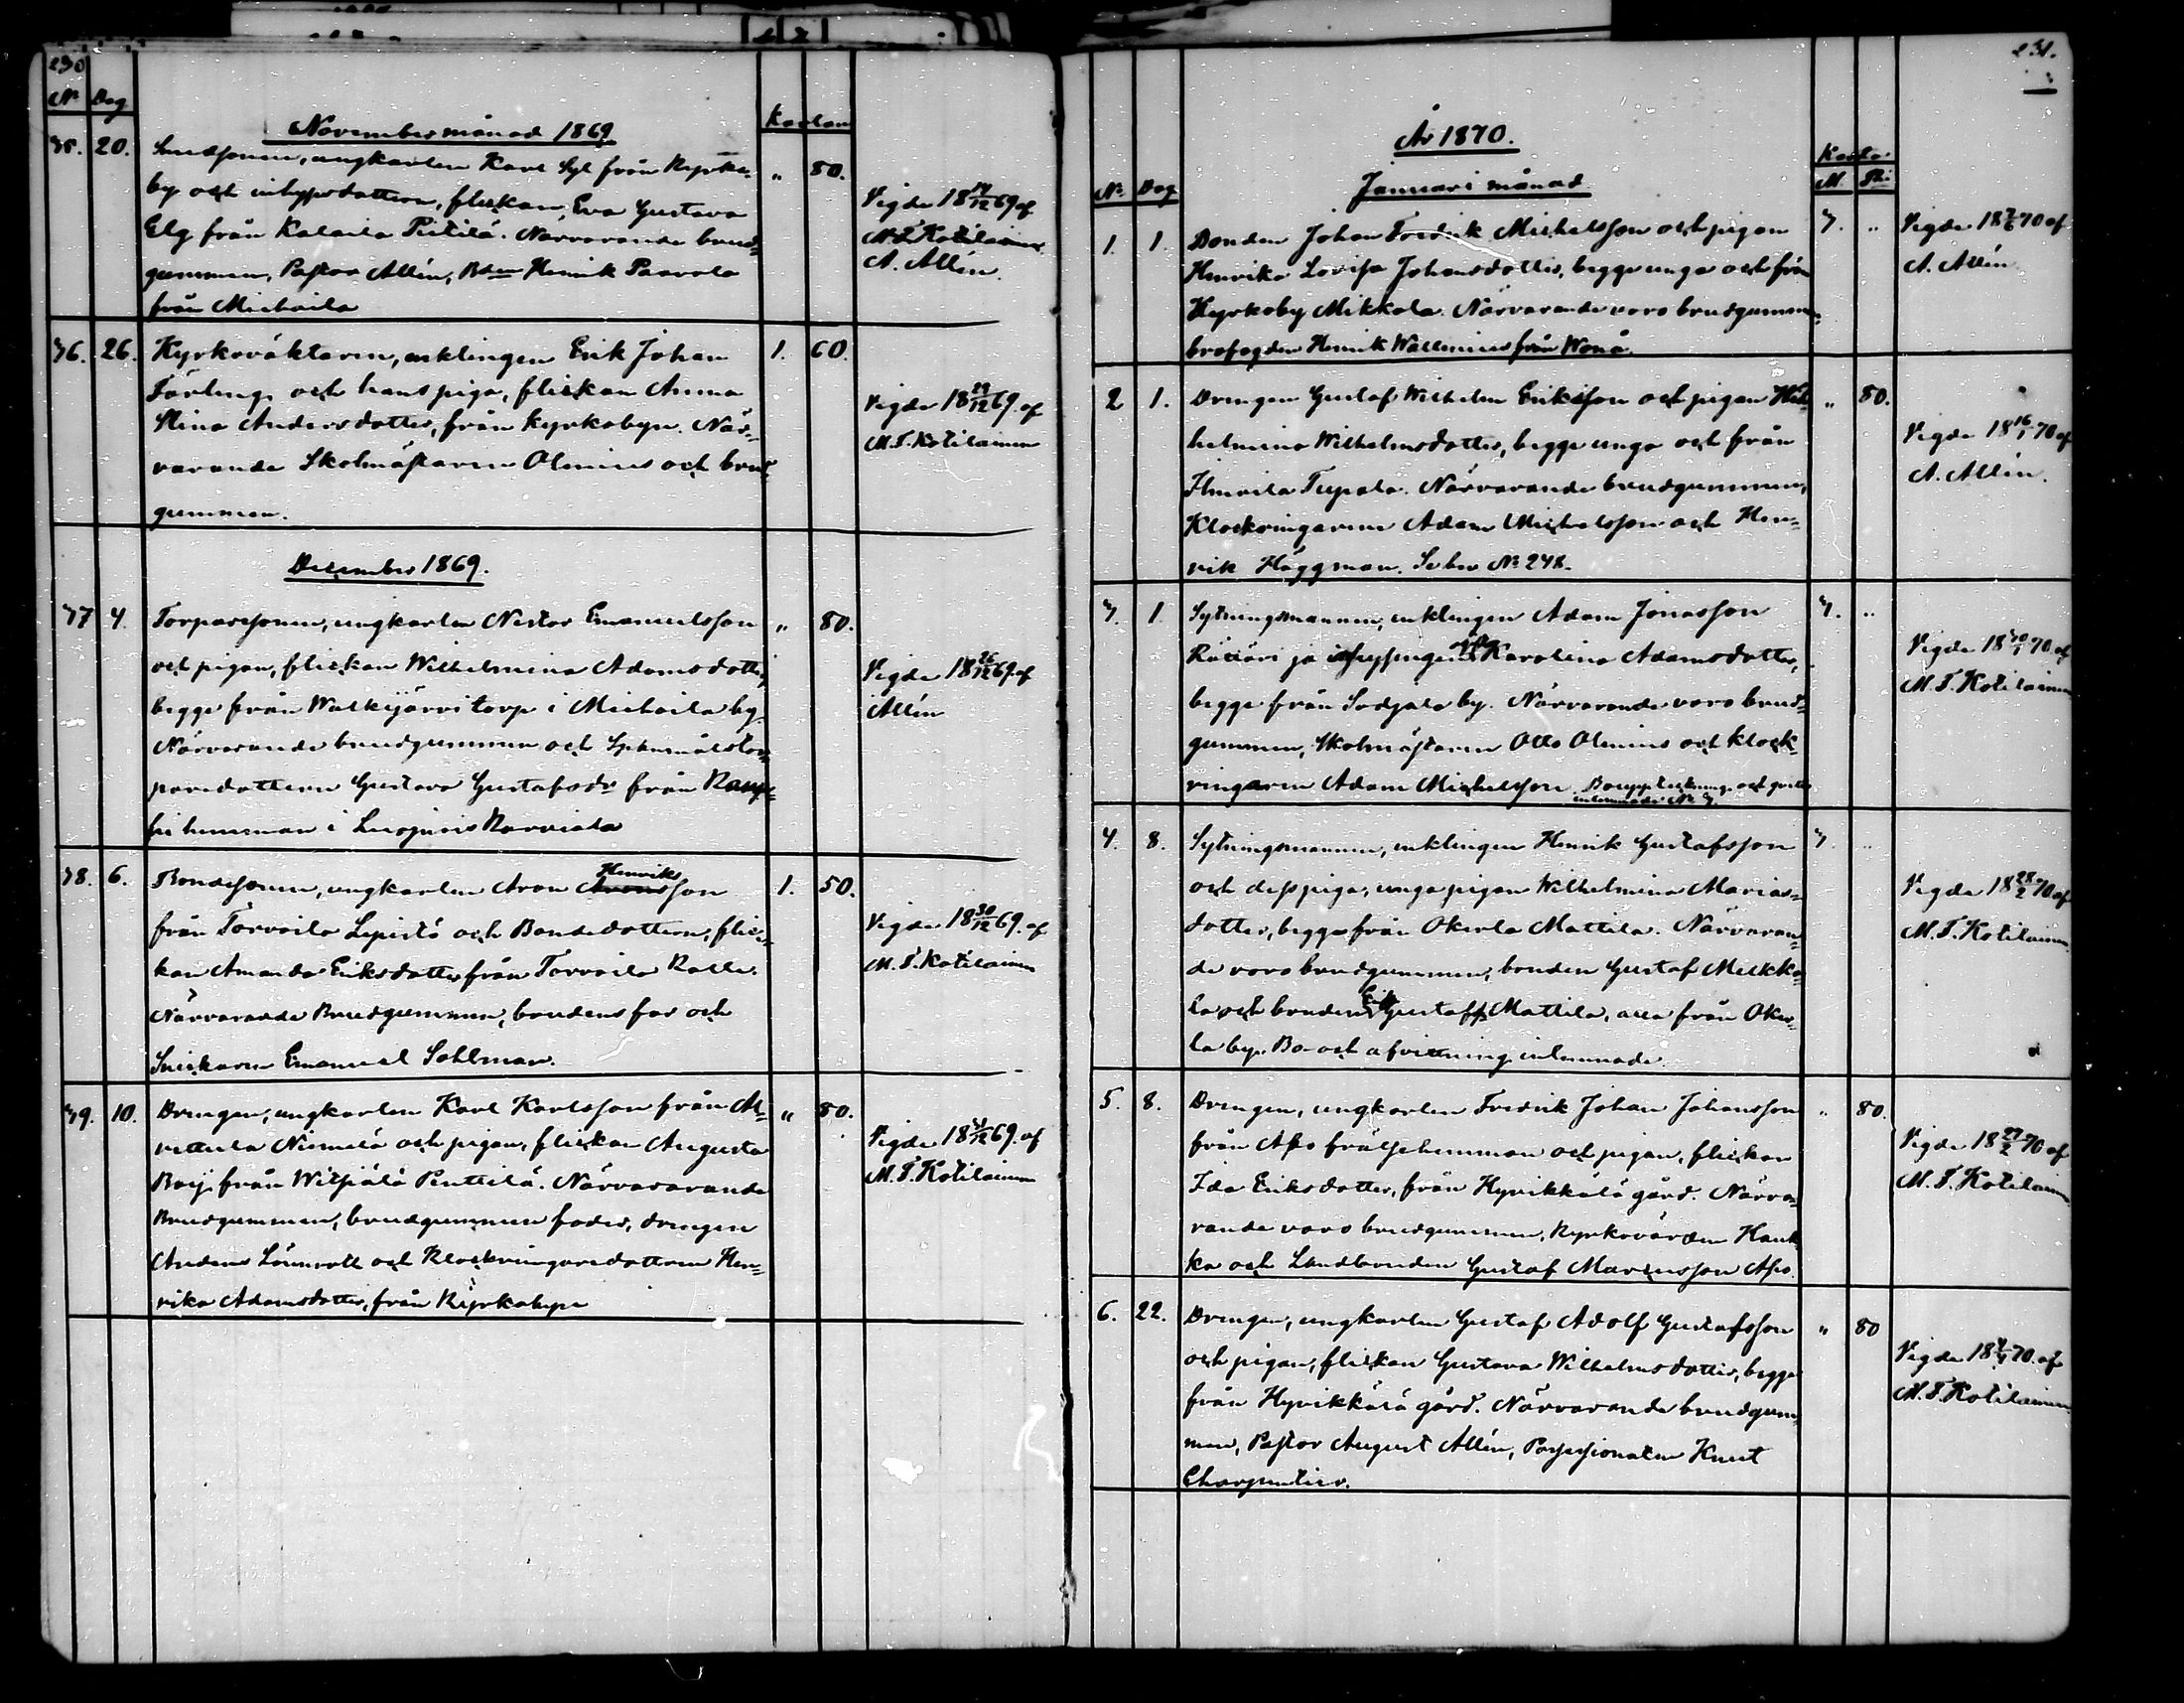 230
No Dag
Novembermånad 1869
Kartan
35. 20. ungkarlen Karl Syl från Kyrko- " 80.
by och inhysesdottern, flickan, Eva Gustava
Elg från Kalaila Pietilä. Närvarande brud-
gummen, Pastor Allén, Henrik Paavola
från Michaila
Vigde 18 19/12 69 af
M. T. Kotilainen
A. Allén.
36. 26. Kyrkoväktaren, enklingen Erik Johan 1. 60.
Färling och hans piga, flickan Anna
Stina Andersdotter, från Kyrkobyn. När-
varande Skolmästaren Olenius och brud-
gummen.
Vigde 18 29/12 69. af
M. T. Kotilainen
December 1869.
37 4. Torparesonen, ungkarlen Nestor Emanuelsson " 80.
och pigan, flickan Wilhelmina Adamsdotter,
begge från Walkijärvi torp i Michaila by.
Närvarande brudgummen och
paredottern Gustava Gustafsdr från
hemman i
Vigde 18 26/12 69. af
Allén
38. 6. Bondesonen, ungkarlen Aron Henriksson 1. 50.
från Torvoila Lepistö och Bondedottern, flic-
kan Amanda Eriksdotter från Torvoila Ralli.
Närvarande Brudgummen, brudens far och
Snickaren Emanuel Sahlman.
Vigde 18 30/12 69. af
M. T. Kotilainen
39. 10. Drengen, ungkarlen Karl Karlsson från Al-
vettula Niemelä och pigan, flickan Augusta " 80.
från Witsiälä Penttilä. Närvararande
Brudgummen, brudgummens fader, drengen
Anders Lönnroth och Klockringaredottern Hen-
rika Adamsdotter, från Kyrkobyn
Vigde 18 31/12 69. af
M. T. Kotilainen
231.
År 1870.
Januari månad
No Dag
M. Pi
1. 1. Bonden Johan Fredrik Michelsson och pigan 3. "
Henrika Lovisa Johansdotter, begge unga och från
Kyrkoby Mikkola. Närvarande voro brudgummen,
brofogden Henrik Wallenius från Wanå.
Vigde 18 70 af
A. Allén
2 1. Drengen Gustaf Wilhelm Eriksson och pigan Wil- " 80.
helmina Wilhelmsdotter, begge unga och från
Ilmoila Tupala. Närvarande brudgummen,
Klockringaren Adam Michelsson och Hen-
rik Häggman. Sedan No 248.
Vigde 18 16/1 70 af
A. Allén.
3. 1 Sytningsmannen, enklingen Adam Jonasson 3. "
ja Karolina Adamsdotter,
begge från Sodjala by. Närvarande voro brud-
gummen, Skolmästaren Otto Olenius och klock-
ringaren Adam Michelsson Bouppteckning och
inlemnade No 3.
Vigde 18 30/1 70. af
M. T. Kotilainen
4. 8. Sytningsmannen, enklingen Henrik Gustafsson 3 "
och dess piga, unga pigan Wilhelmina Marias-
dotter, begge från Okerla Mattila. Närvaran-
de voro brudgummen, bonden Gustaf Meikko-
la och bonden Erik Gustafss Mattila, alla från Oker-
la by. Bo- och afvittning inlemnade.
Vigde 18 28/2 70 af
M. T. Kotilainen
5. 8. Drengen, ungkarlen Fredrik Johan Johansson " 80.
från Apo frälsehemman och pigan, flickan
Ida Eriksdotter, från Hyvikkälä gård. Närva-
rande voro brudgummen, Kyrkovärden Hauk-
ka och Landbonden Gustaf Mariusson Apo.
Vigde 18 27/2 70 af
M. T. Kotilainen
6. 22. Drengen, ungkarlen Gustaf Adolf Gustafsson " 80
och pigan, flickan Gustava Wilhelmsdotter, begge
från Hyvikkälä gård. Närvarande brudgum-
men, Pastor August Allén, Possessionaten Knut
Charpentier.
Vigde 18 70. af
M. T. Kotilainen